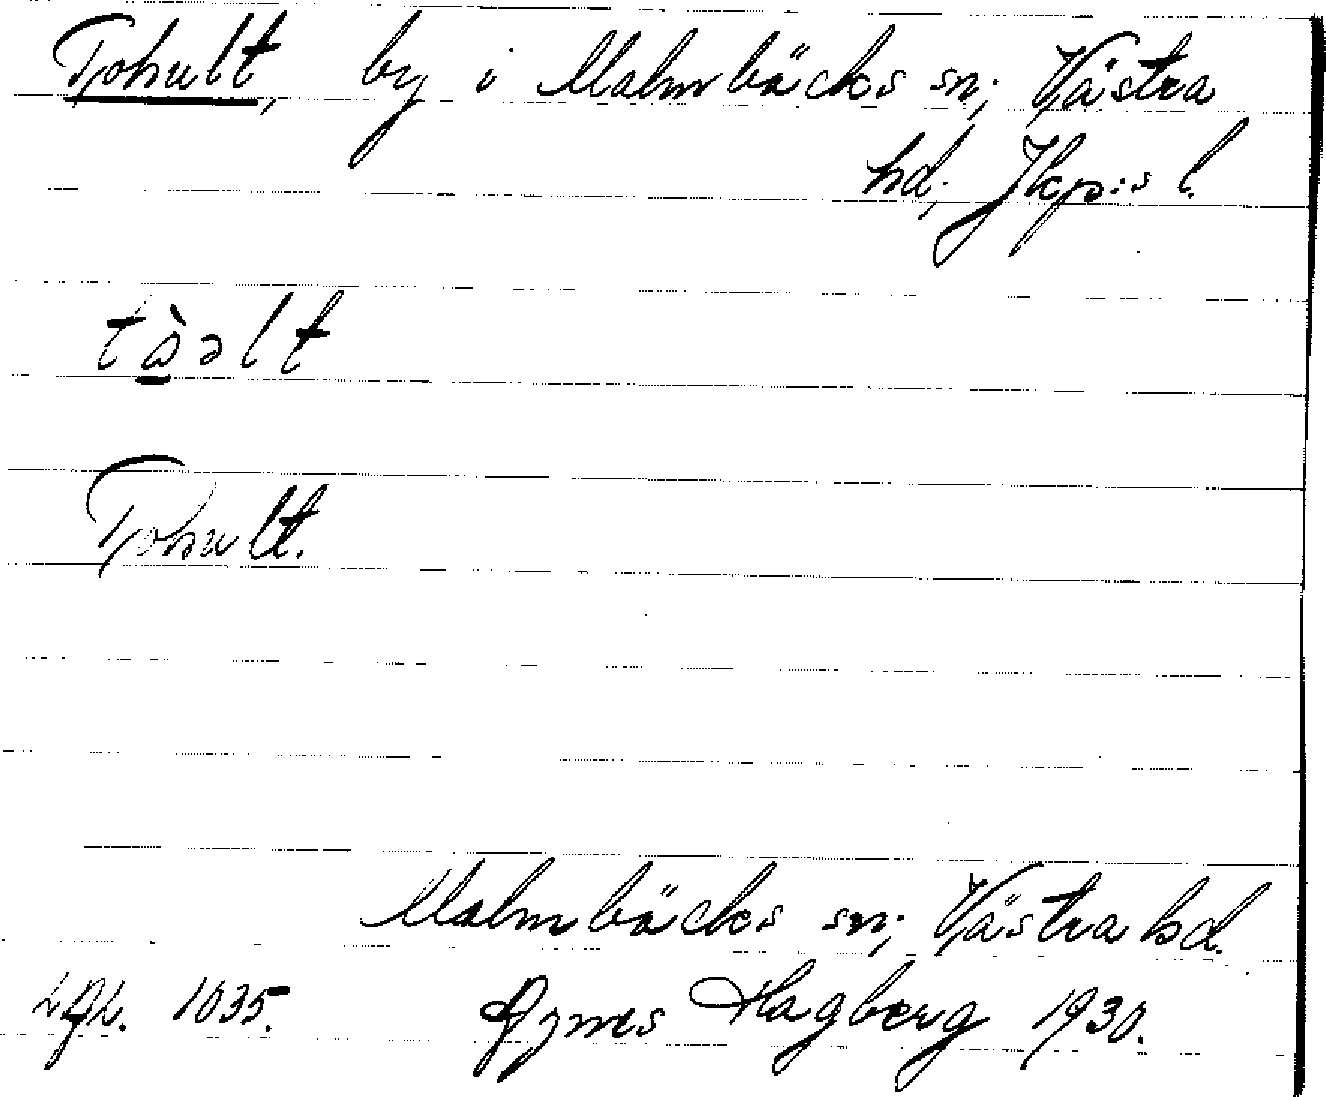 Tohult, by i Malmbäcks sn; Västra
hd, Jkp:s l.
tòəlt
Tohult.
Malmbäcks sn; Västra hd.
1035. Agnes Hagberg 1930.